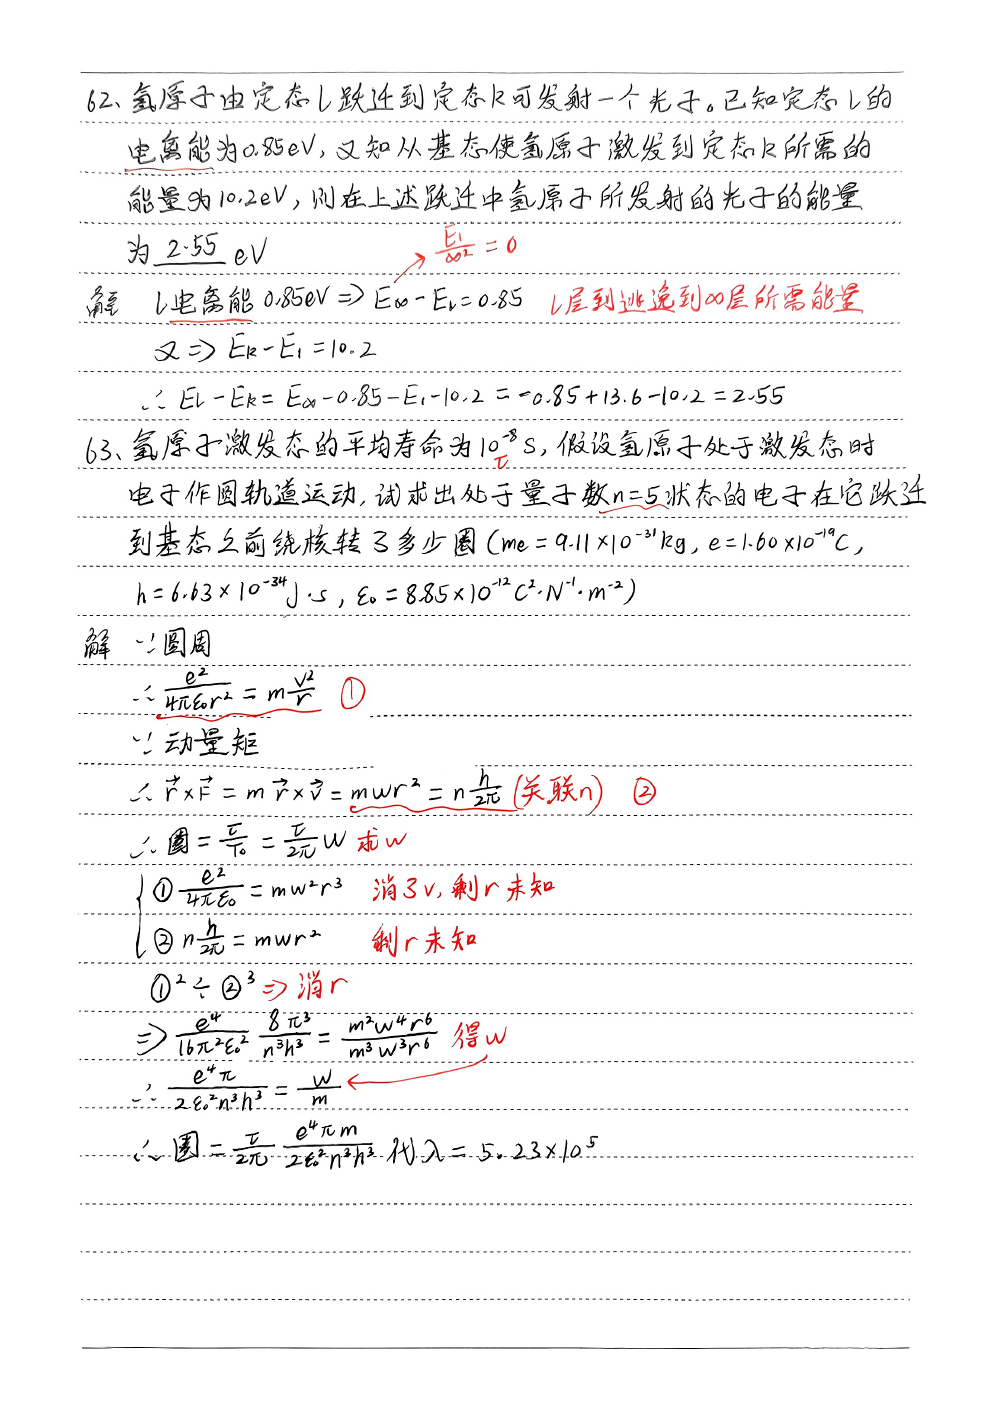 62、氢原子由定态l跃迁到定态k可发射一个光子。已知定态l的
电离能为0.85eV, 又知从基态使氢原子激发到定态k所需的
能量为10.2eV, 则在上述跃迁中氢原子所发射的光子的能量
为 2.55 eV
E₁/∞² = 0
解 l电离能 0.85eV ⇒ E∞-El=0.85 l层到逃逸到∞层所需能量
又⇒ Ek-E₁=10.2
∴ El-Ek= E∞-0.85-E₁-10.2 = -0.85+13.6-10.2=2.55
63、氢原子激发态的平均寿命为10⁻⁸S, 假设氢原子处于激发态时
τ
电子作圆轨道运动, 试求出处于量子数n=5状态的电子在它跃迁
到基态之前绕核转了多少圈(me=9.11×10⁻³¹kg, e=1.60×10⁻¹⁹C,
h=6.63×10⁻³⁴J·s, ε₀=8.85×10⁻¹²C²·N⁻¹·m⁻²)
解 ∵圆周
∴ e²/4πε₀r² = m v²/r ①
∵动量矩
∴ r⃗×F⃗ = m r⃗×v⃗ = mwr² = n h/2π (关联n) ②
∴ 圈 = τ/T₀ = τ/2π W 求w
① e²/4πε₀ = mw²r³ 消了v, 剩r未知
② n h/2π = mwr² 剩r未知
①² ÷ ②³ ⇒ 消r
⇒ e⁴/16π²ε₀² 8π³/n³h³ = m²w⁴r⁶/m³w³r⁶ 得w
∴ e⁴π/2ε₀²n³h³ = w/m
∴ 圈 = τ/2π e⁴πm/2ε₀²n³h³ 代入 = 5.23×10⁵